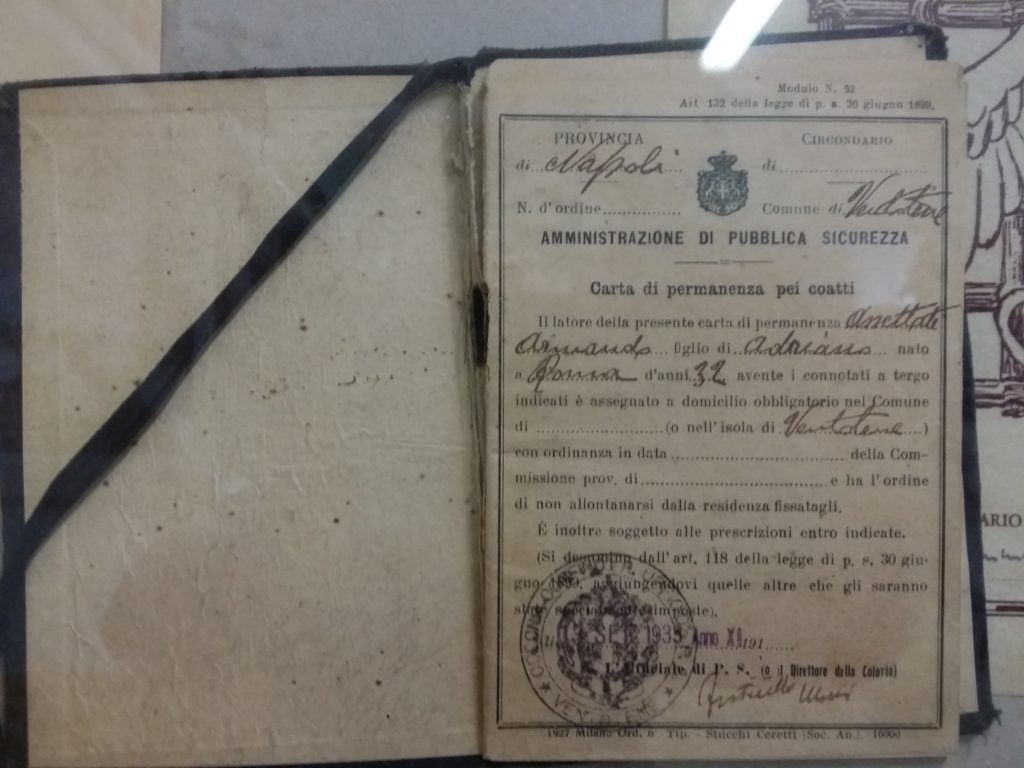 Modulo N. 52
Art 132 della legge di p. s. 30 giugno 1899.
PROVINCIA
di Napoli
CIRCONDARIO
di
N. d'ordine
Comune di Ventotene
AMMINISTRAZIONE DI PUBBLICA SICUREZZA
Carta di permanenza pei coatti
Il latore della presente carta di permanenza
Armando figlio di Adriano nato
a Roma d'anni 32 avente i connotati a tergo
indicati è assegnato a domicilio obbligatorio nel Comune
di (o nell'isola di Ventotene)
con ordinanza in data della Com-
missione prov. di e ha l'ordine
di non allontanarsi dalla residenza fissatagli.
È inoltre soggetto alle prescrizioni entro indicate.
(Si desumino dall'art. 118 della legge di p. s. 30 giu-
gno 1899, aggiungendovi quelle altre che gli saranno
imposte).
SET 1933 Anno XI 191
L'Ufficiale di P. S. (o il Direttore della Colonia)
1927 Milano Ord. 6 Tip. - Stucchi Ceretti (Soc. An.) 16000
ARIO